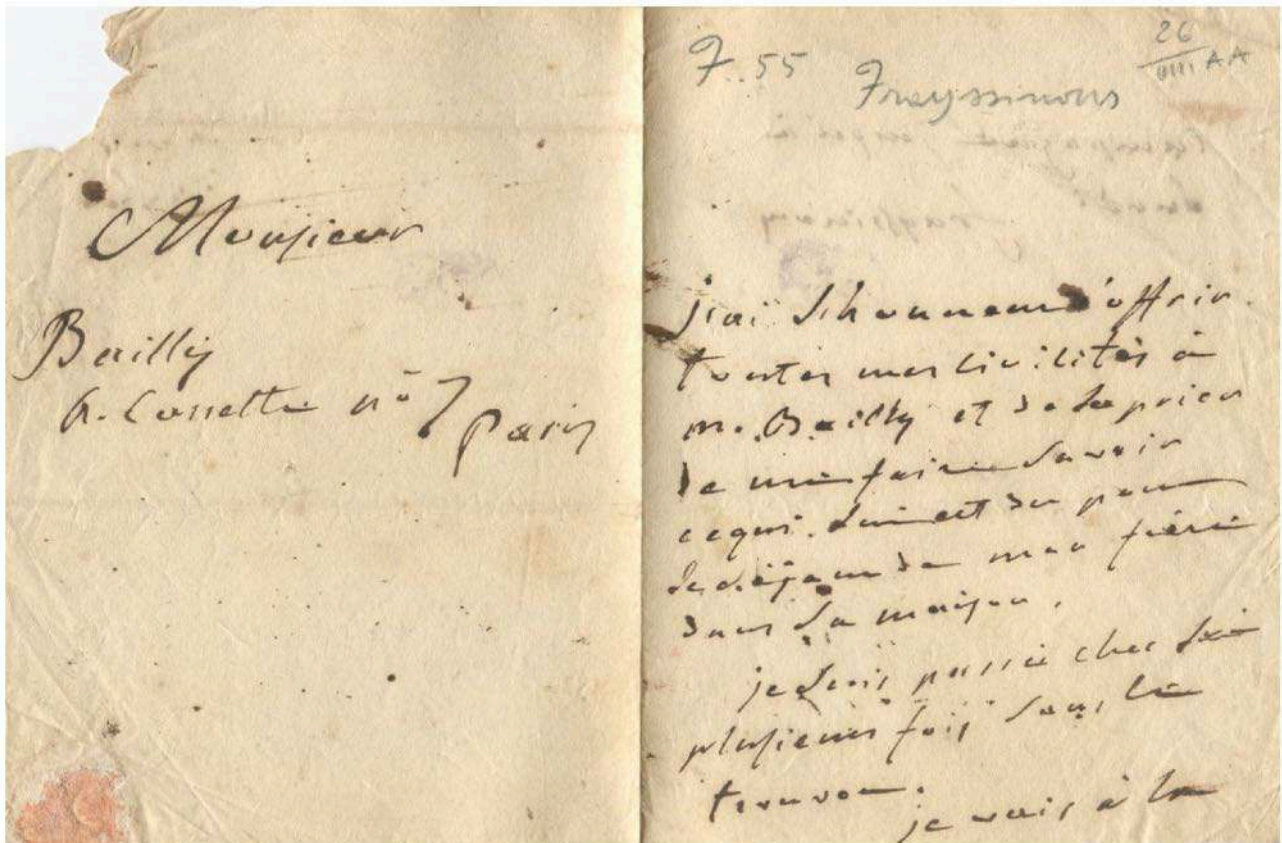 Monsieur
Bailly
R. Cassette n° 7
Paris
F. 55 Frayssinous
26
j'ai l'honneur d'offrir
toutes mes civilités à
m. Bailly et de le prier
de me faire savoir
ce qui lui est du pour
le séjour de mon frère
dans sa maison.
je suis passé chez lui
plusieurs fois sans le
trouver.
je vais à la